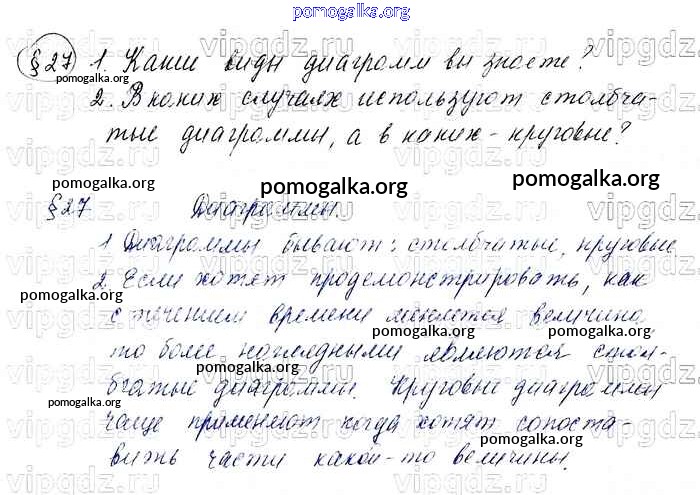 pomogalka.org
§27 1. Какие виды диаграмм вы знаете?
pomogalka.org
2. В каких случаях используют столбча-
тые диаграммы, а в каких - круговые?
pomogalka.org pomogalka.org pomogalka.org
§27 Диаграммы.
1 Диаграммы бывают: столбчатые, круговые
2. Если хотят продемонстрировать, как
pomogalka.org
с течением времени меняется величина,
pomogalka.org pomogalka.org
то более наглядными являются стол-
бчатые диаграммы. Круговые диаграммы
pomogalka.org pomogalka.org
чаще применяют когда хотят сопоста-
pomogalka.org
вить части какой-то величины.